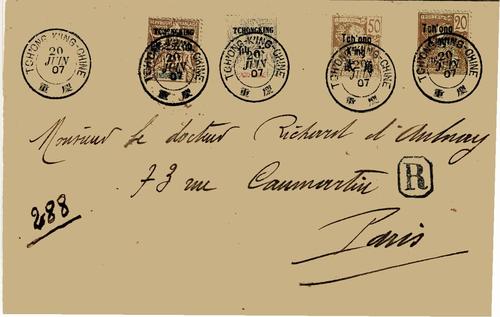 TCHONG-KING-CHINE
20
JUIN
07
重慶
TCHONGKING
TCHONG-KING-CHINE
20
JUIN
07
重慶
TCHONGKING
TCHONG-KING-CHINE
20
JUIN
07
重慶
50
Tch'ong
TCHONG-KING-CHINE
20
JUIN
07
重慶
20
Tch'ong
TCHONG-KING-CHINE
20
JUIN
07
重慶
Monsieur le docteur Richard d'Aulnay
73 rue Caumartin
R
288
Paris